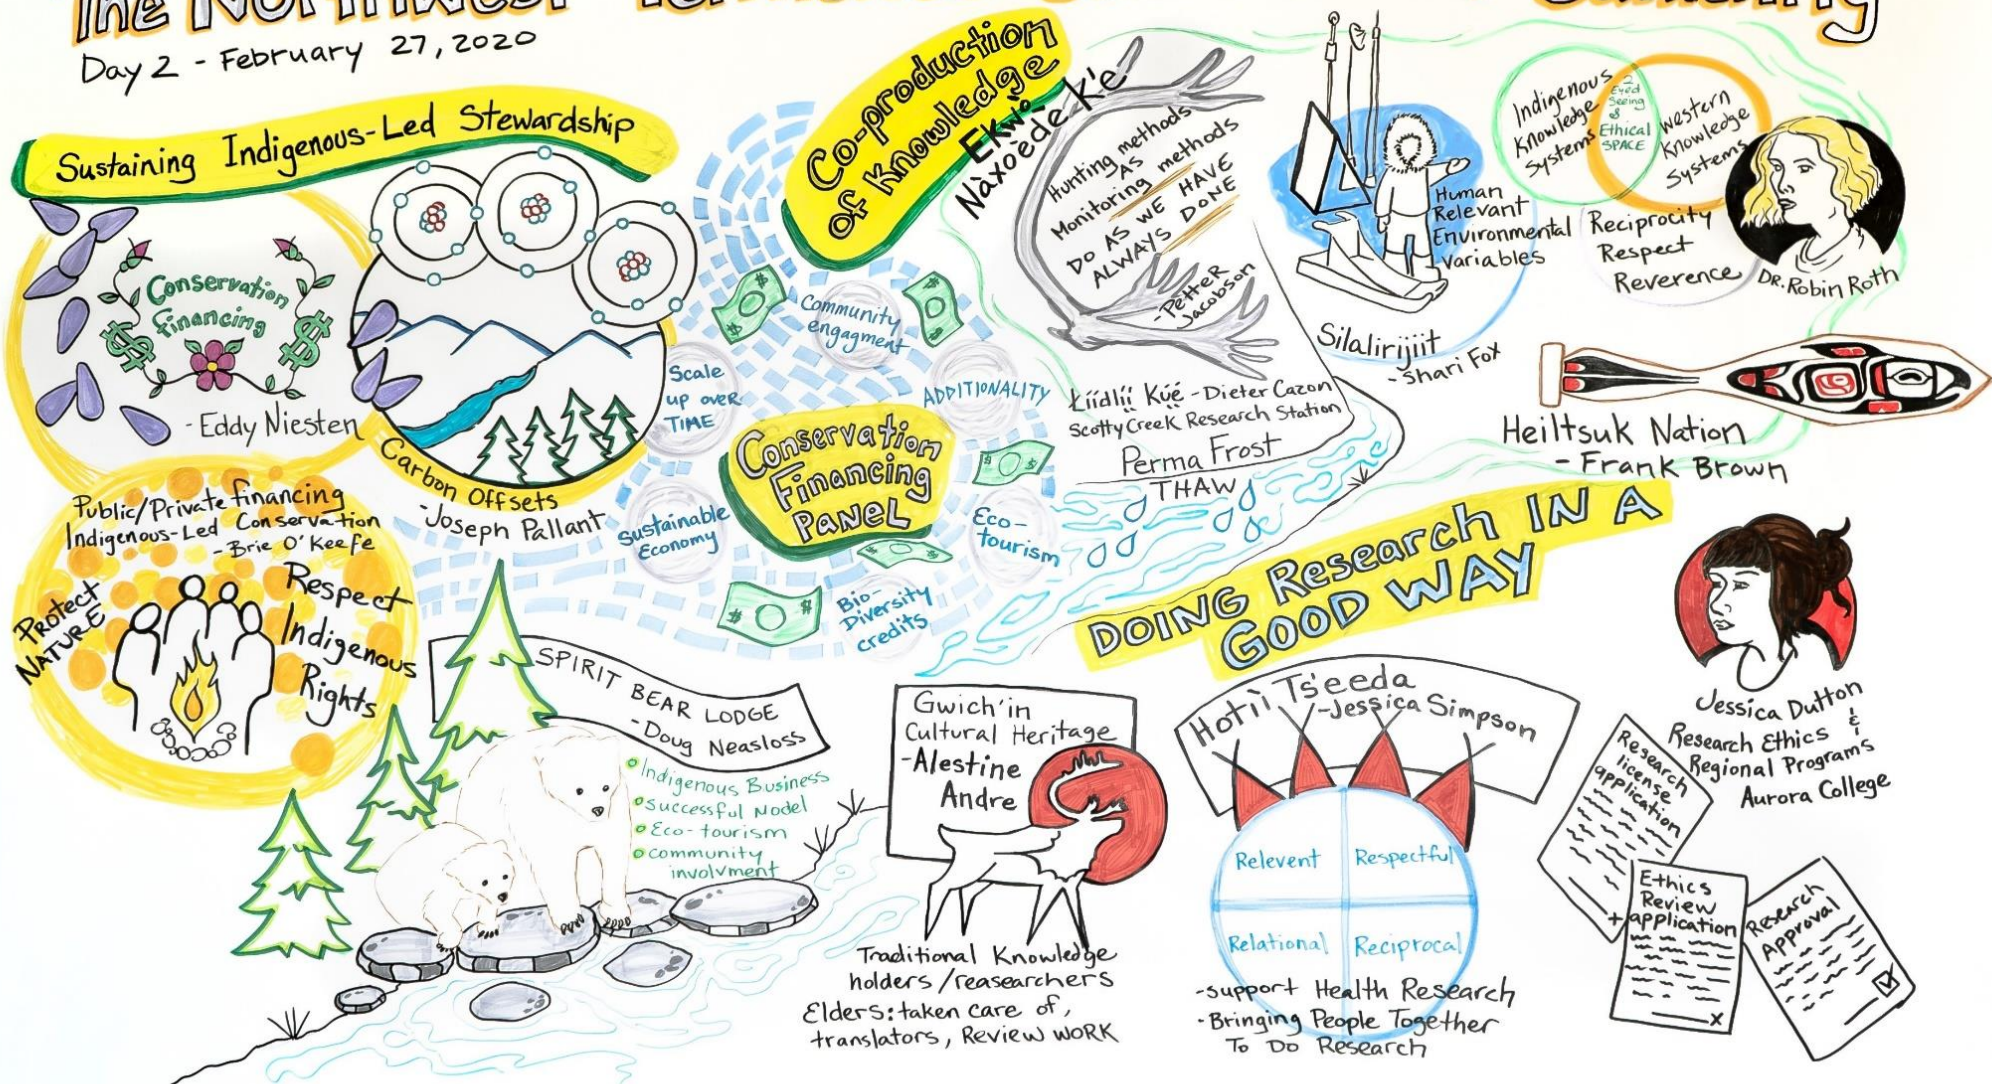 The Northwest
Day 2 - February 27, 2020
Sustaining Indigenous-Led Stewardship
Conservation
financing
- Eddy Niesten
Carbon Offsets
- Joseph Pallant
Public/Private financing
Indigenous-Led Conservation
- Brie O'Keefe
Protect
NATURE
Respect
Indigenous
Rights
Conservation
Financing
PANEL
Community
engagment
ADDITIONALITY
Eco-
tourism
Bio-
Diversity
credits
Sustainable
Economy
Scale
up over
TIME
SPIRIT BEAR LODGE
- Doug Neasloss
Indigenous Business
successful Model
Eco-tourism
community
involvment
Co-production
of Knowledge
Ekwò
Nàxoèdee K'è
Hunting methods
AS
Monitoring methods
DO AS WE HAVE
ALWAYS DONE
- Petter
Jacobson
Łíídlįį Kúę́ - Dieter Cazon
Scotty Creek Research Station
Perma Frost
THAW
Human
Relevant
Environmental
Variables
Silalirijiit
- Shari Fox
Indigenous
Knowledge
Systems
2
Eyed
Seeing
&
Ethical
SPACE
Western
Knowledge
Systems
Reciprocity
Respect
Reverence
DR. Robin Roth
Heiltsuk Nation
- Frank Brown
DOING Research IN A
GOOD WAY
Gwich'in
Cultural Heritage
- Alestine
Andre
Traditional Knowledge
holders/reasearchers
Elders: taken care of,
translators, Review WORK
Hotıì Ts'eeda
- Jessica Simpson
Relevent
Respectful
Relational
Reciprocal
- support Health Research
- Bringing People Together
To Do Research
Jessica Dutton
Research Ethics &
Regional Programs
Aurora College
Research
license
application
Ethics
Review
application
x
Research
Approval